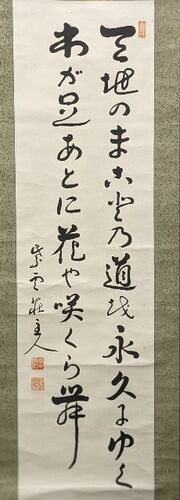 天地のまこと乃道を永久にゆく
わが足あとに花や咲くら舞
紫雲荘主人